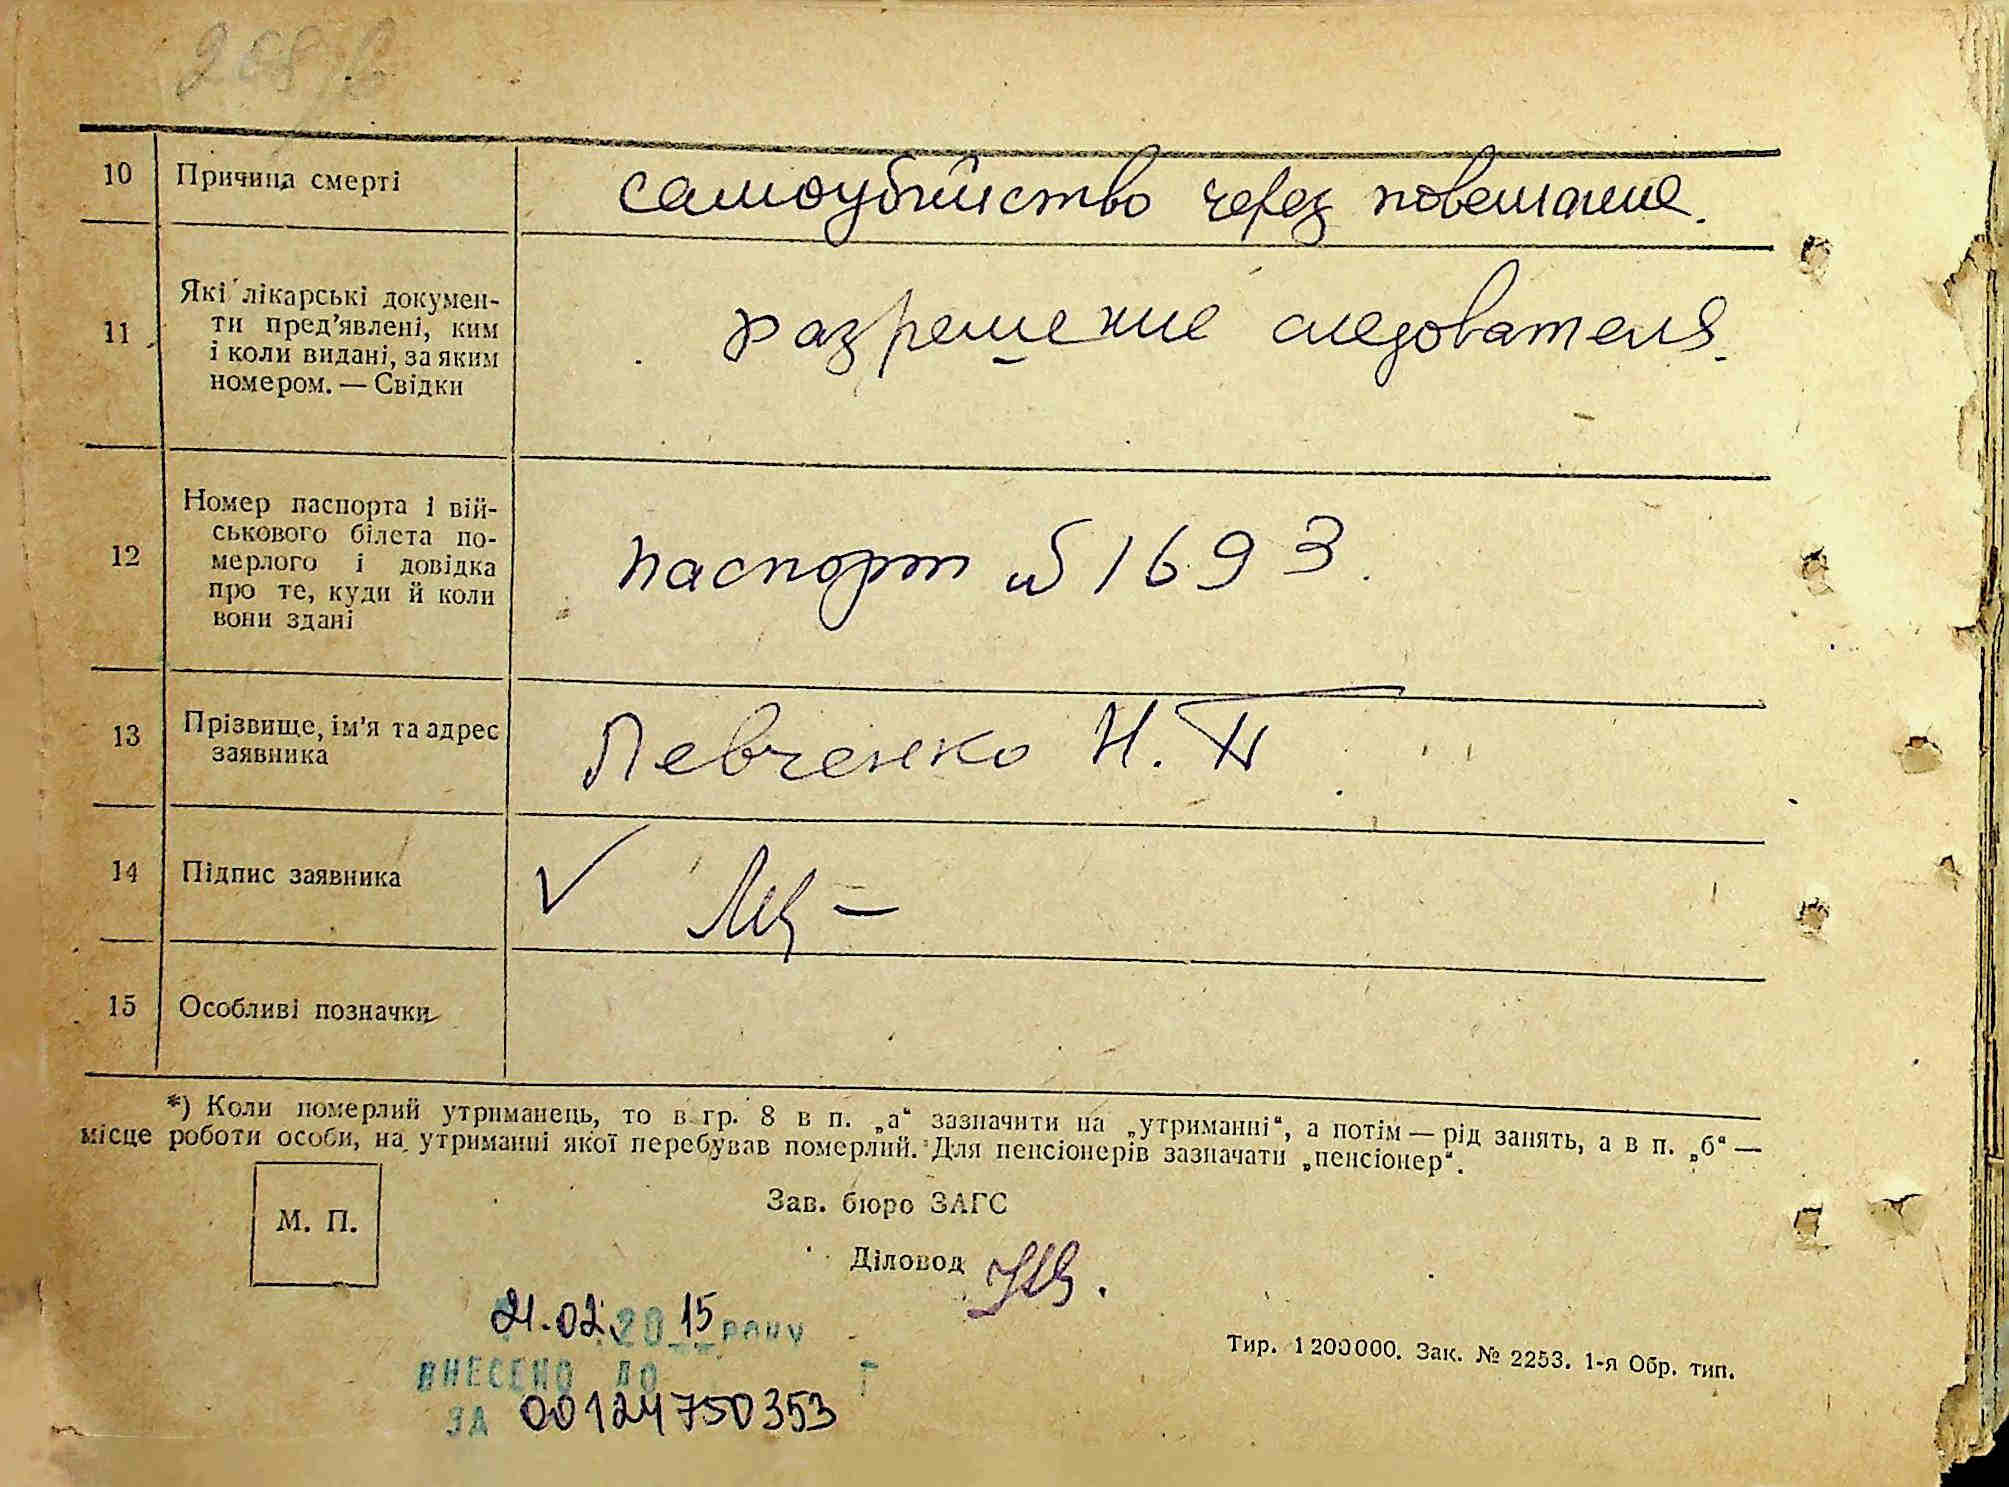 10 Причина смерті самоубийство через повешание.
11 Які лікарські докумен-
ти пред’явлені, ким
і коли видані, за яким
номером. — Свідки
разрешение следователя.
12 Номер паспорта і вій-
ськового білета по-
мерлого і довідка
про те, куди й коли
вони здані
паспорт № 1693.
13 Прізвище, ім’я та адрес
заявника
Левченко Н. П
14 Підпис заявника
15 Особливі позначки
*) Коли померлий утриманець, то в гр. 8 в п. „а“ зазначити на „утриманні“, а потім — рід занять, а в п. „б“ —
місце роботи особи, на утриманні якої перебував померлий. Для пенсіонерів зазначати „пенсіонер“.
М. П.
Зав. бюро ЗАГС
Діловод
21.02.2015 року
ВНЕСЕНО ДО
ЗА 00124750353
Тир. 1 200000. Зак. № 2253. 1-я Обр. тип.